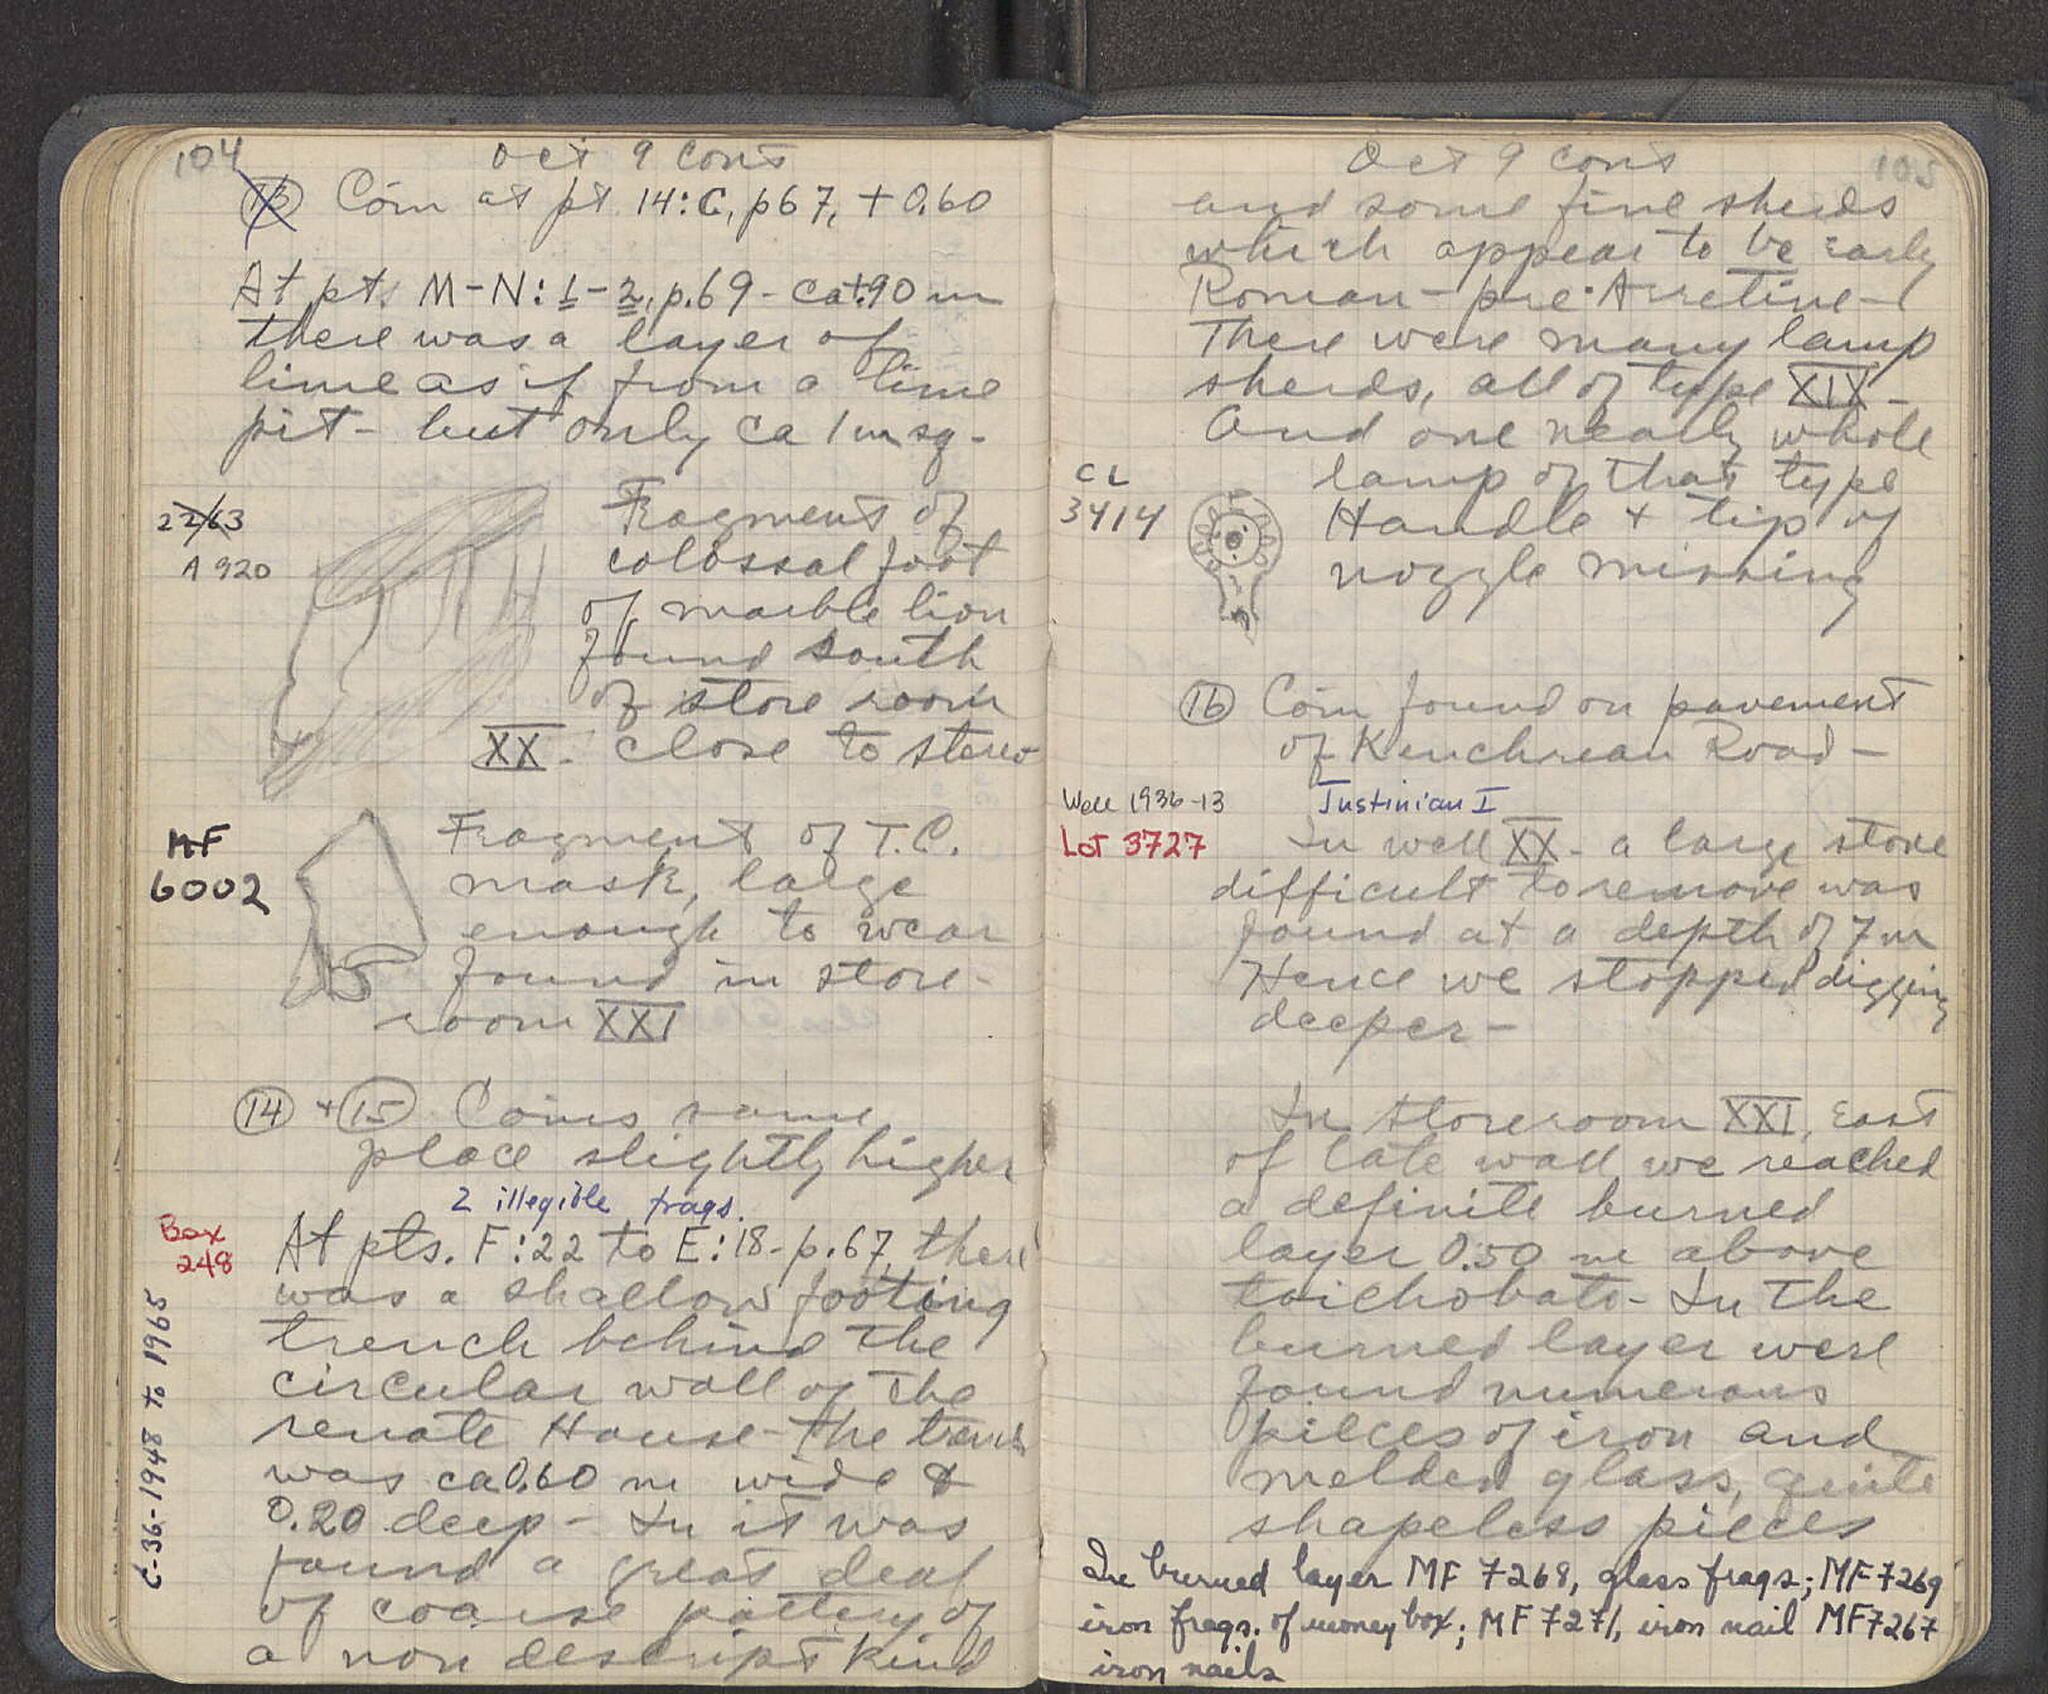 104
Oct 9 cont
13 Coin at pt 14:C, p67, +0.60
At pts M-N:1-2, p.69 - ca +.90 m
there was a layer of
lime as if from a lime
pit - but only ca 1 m sq -
2263
A 920
Fragment of
colossal foot
of marble lion
found south
of store room
XX - close to stereo
MF
6002
Fragment of T.C.
mask, large
enough to wear
found in store-
room XXI
14 + 15 Coins same
place slightly higher
2 illegible frags.
Box
248
At pts. F:22 to E:18 - p.67, there
was a shallow footing
trench behind the
circular wall of the
senate House - The trench
was ca 0.60 m wide &
0.20 deep - In it was
found a great deal
of coarse pottery of
a non descript kind
C-36-1948 to 1965
Oct 9 cont
105
and some fine sherds
which appear to be early
Roman - pre-Arretine -
There were many lamp
sherds, all of type XIX -
And one nearly whole
CL
3414
lamp of that type
Handle + tip of
nozzle missing
16 Coin found on pavement
of Kenchrean Road -
Justinian I
Well 1936-13
Lot 3727
In well XX - a large stone
difficult to remove was
found at a depth of 7 m
Hence we stopped digging
deeper -
In storeroom XXI, East
of late wall we reached
a definite burned
layer 0.50 m above
toichobate - In the
burned layer were
found numerous
pieces of iron and
melded glass, quite
shapeless pieces
In burned layer MF 7268, glass frags; MF 7269
iron frags. of money box; MF 7271, iron nail MF7267
iron nails